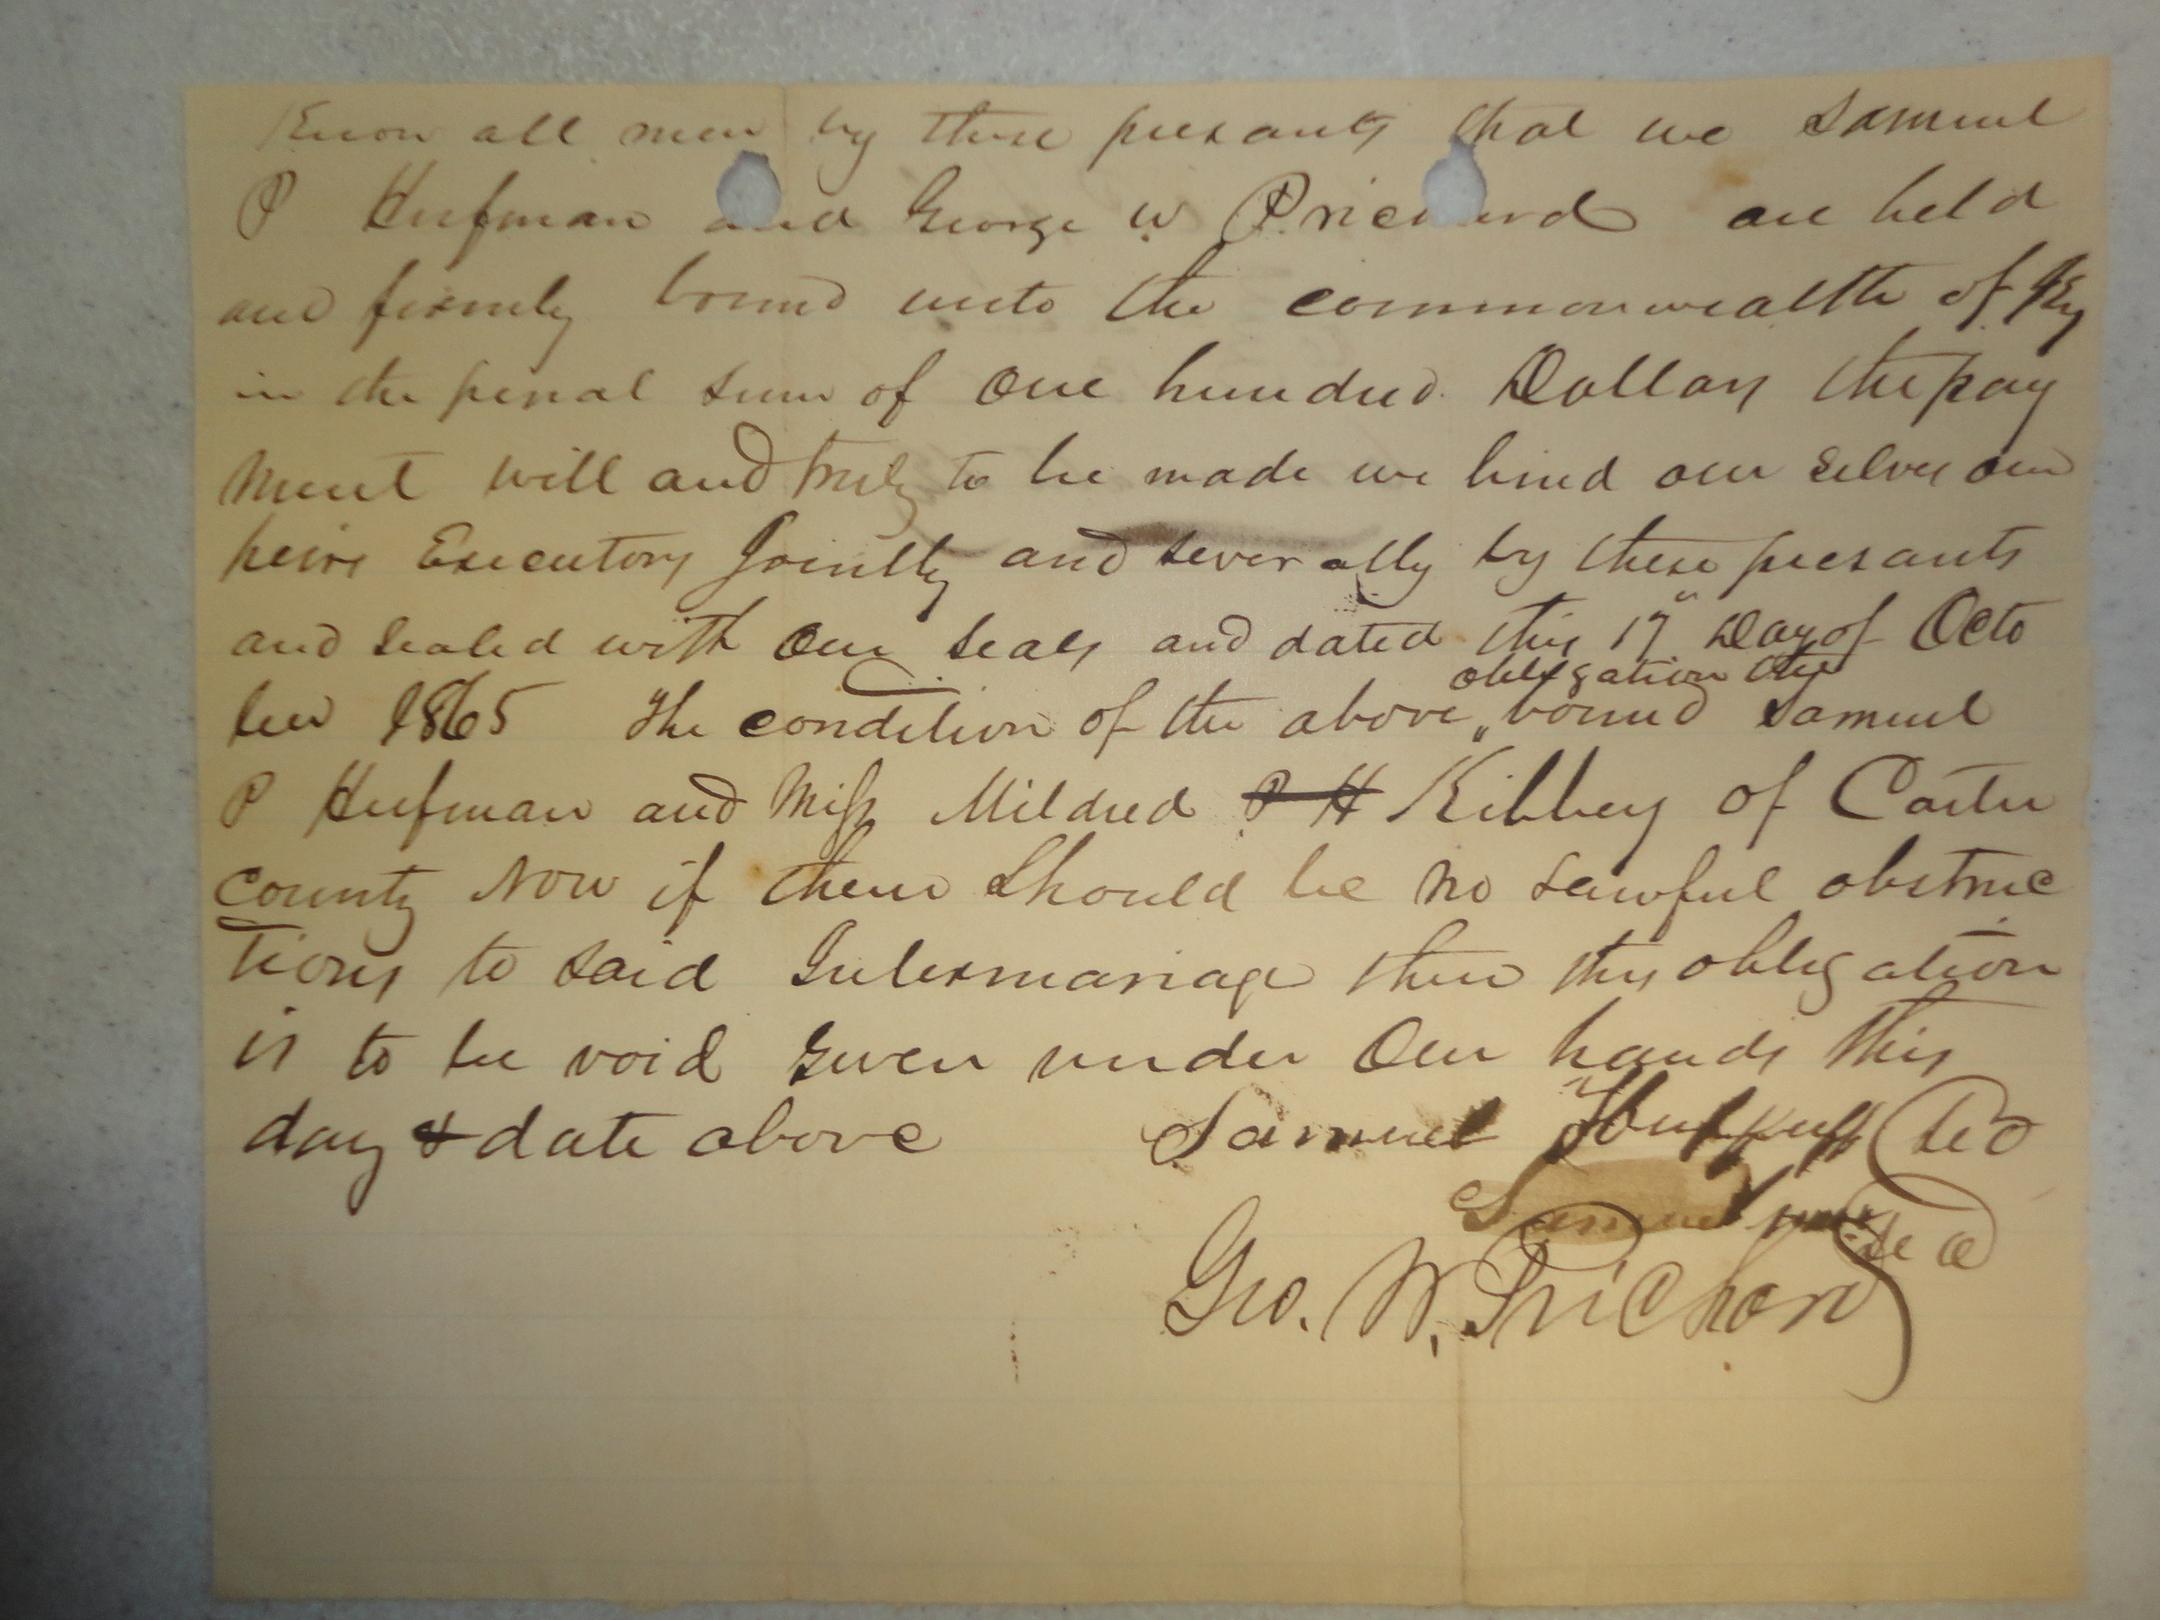 Know all men by these presants that we Samuel
P Hufman and George W Prichard are held
and firmly bound unto the commonwealth of Ky
in the penal sum of One hundred Dollars the pay
ment will and truly to be made we bind our selves our
heirs Executors Jointly and severally by these presants
and sealed with our seals and dated this 17" Day of Octo
ber 1865 The condition of the above " bound Samuel
obligation the
P Hufman and Miss Mildred P H Kibbey of Carter
County Now if there should be no lawful obstruc
tions to said Intermariage then this obligation
is to be void Given under our hands this
day & date above Samuel
Samuel
Geo. W. Prichard